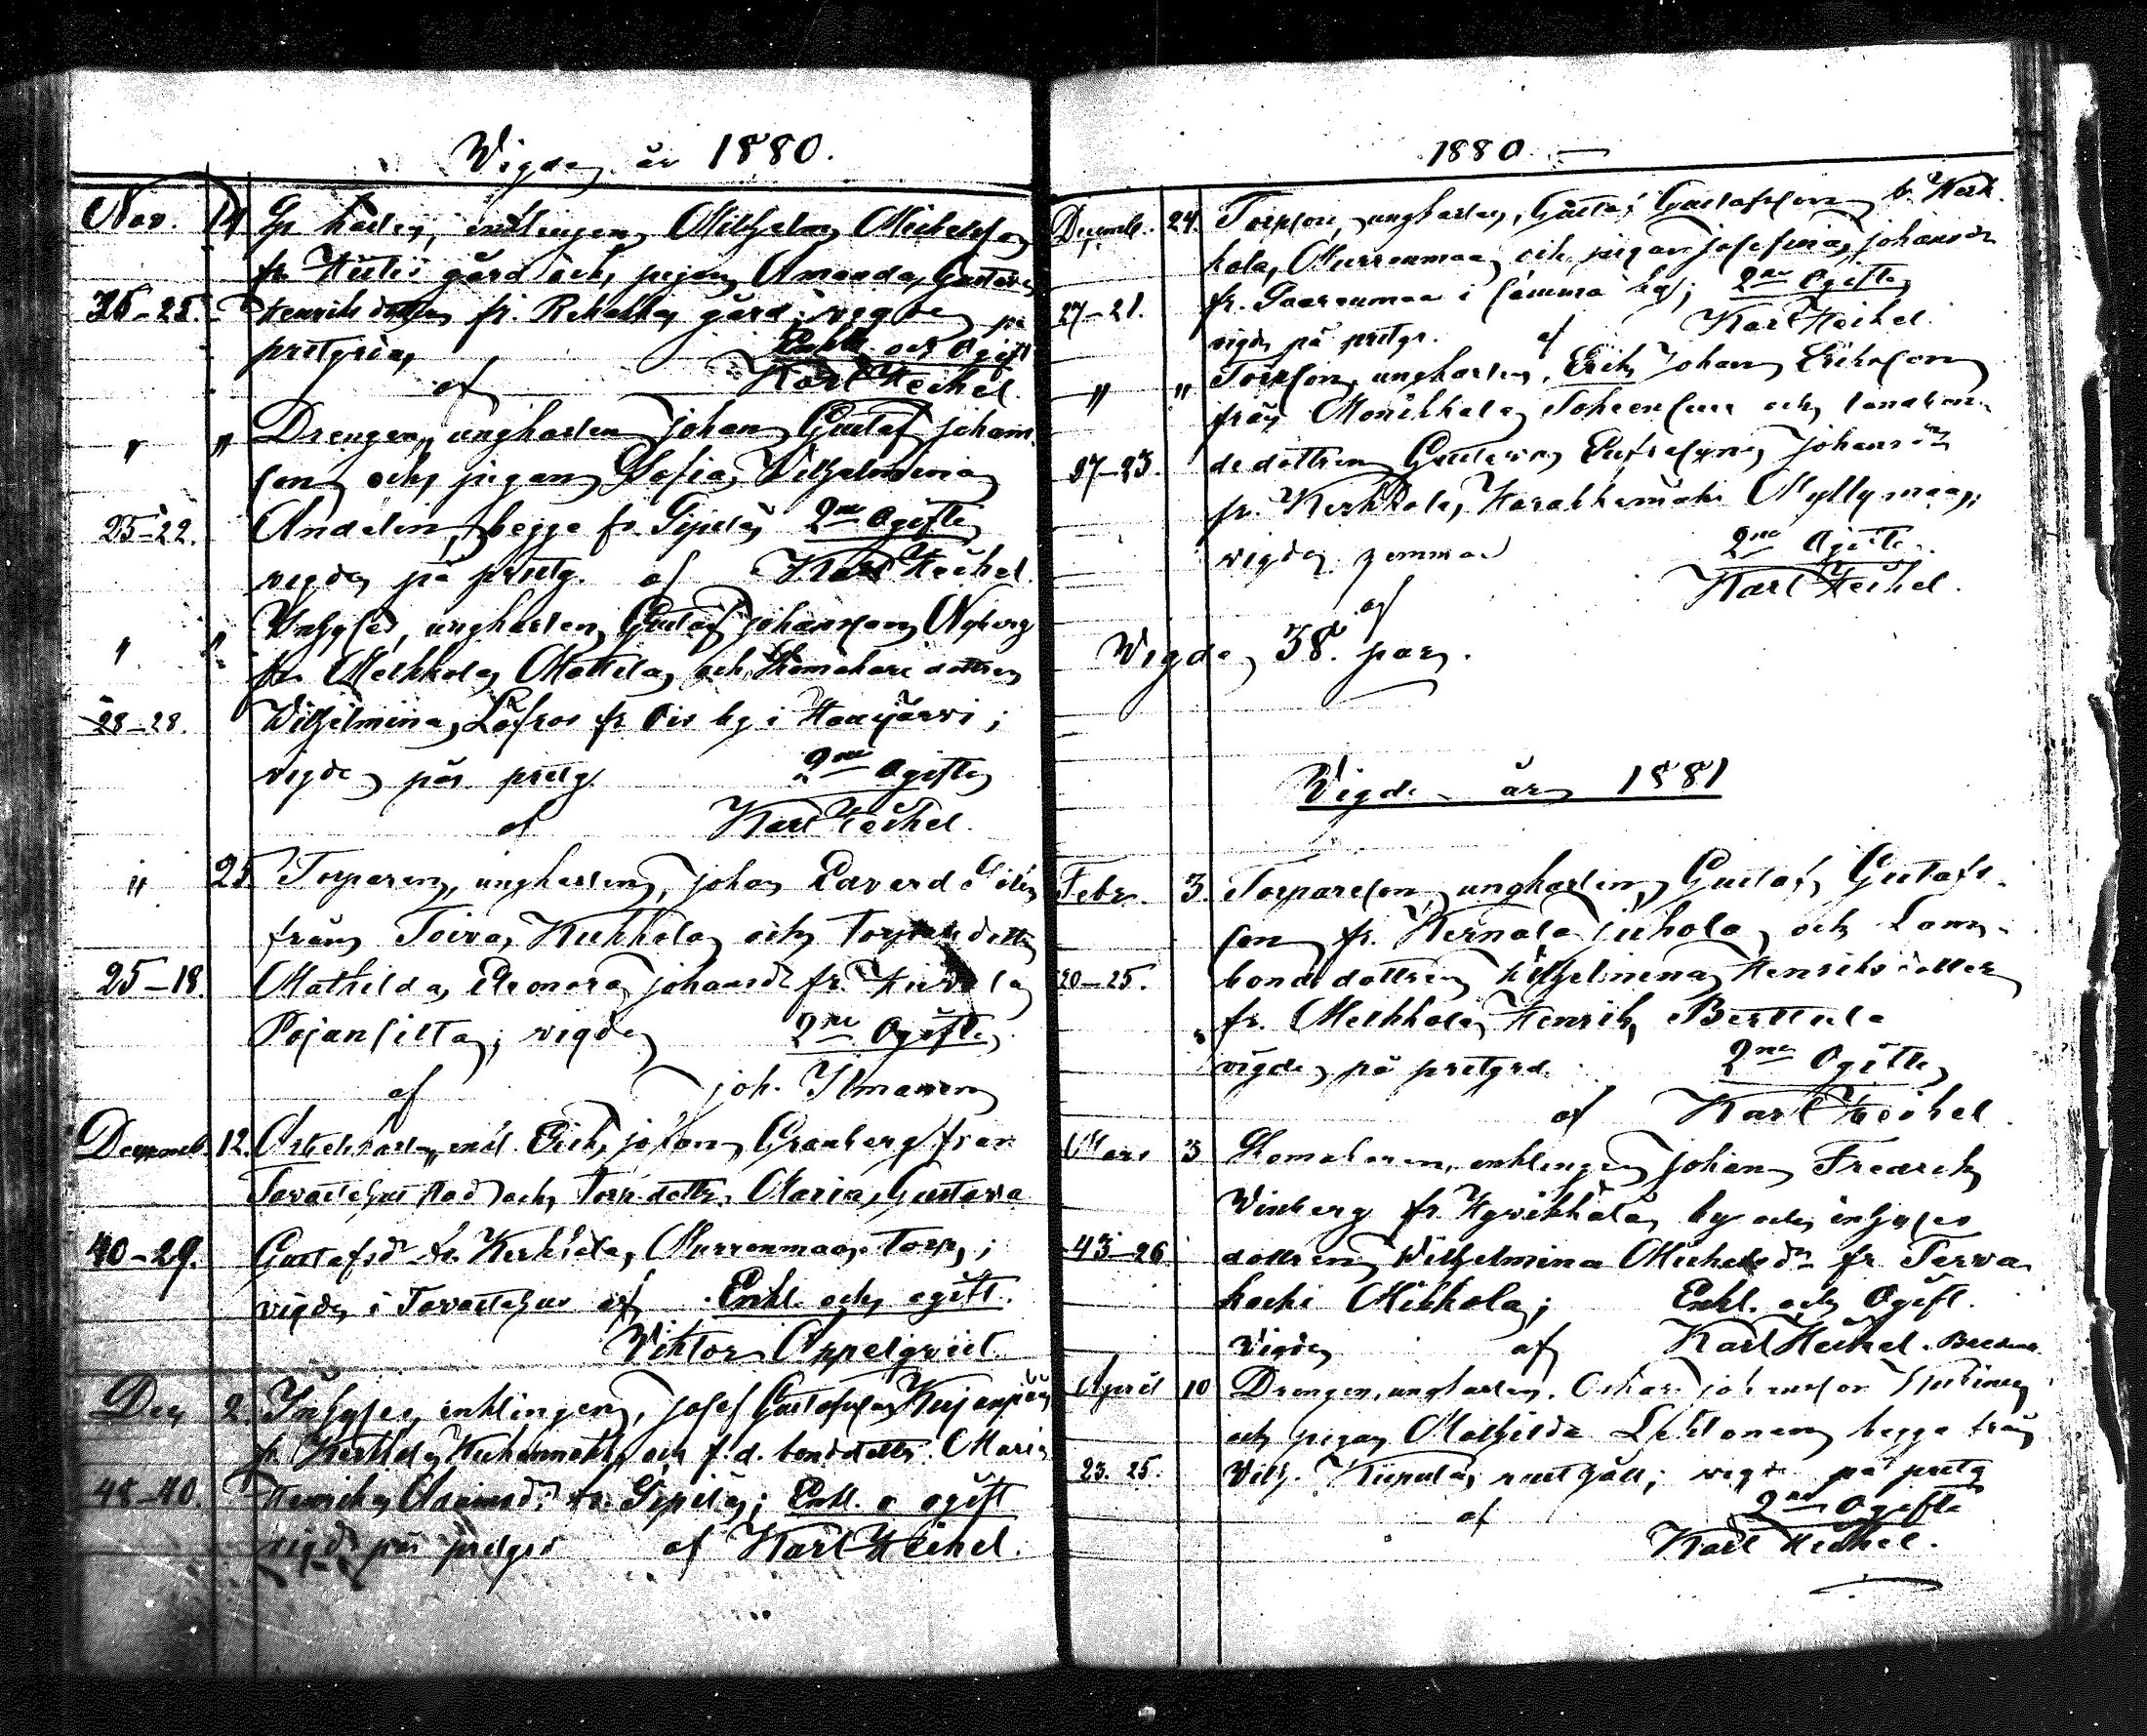 Vigde år 1880.
Nov. 14. enklingen Wilhelm Michelsson
fr. gård och pigan Amanda Gustava
36–25. Henriksdotter fr. Rekola gård; vigde på
prstgrden Enkl. och Ogift
af Karl Heikel.
" " Drengen, ungkarlen Johan Gustaf Johans
son och pigan Sofia Vilhelmina
25–22. Andelin, begge fr. Sipilä 2ne Ogifte
vigde på prestg. af Karl Heikel.
" " Inhyses, ungkarlen Gustaf Johansson Nyberg
fr. Melkkola Mattila och Skomakare dottren
28–28. Wilhelmina Löfroos fr Ois by i Hauhjärvi;
vigde på prestg. 2ne Ogifte
af Karl Heikel.
" 25. Torparen, ungkarlen, Johan Edvard
från Toivo, Kukkola och Torpare dottren
25–18. Mathilda Eleonora Johansdr fr.
Pojansilta; vigde 2ne Ogifte
af Joh. Ilmanen
Decemb. 12. Arbetskarlen, enkl. Erik Johan Granberg från
Tavastehus stad och Torp. dottr. Maria Gustava
40–29. Gustafsdr fr. Kerkkola, Murronmaa Torp;
vigde i Tavastehus af Enkl. och ogift.
Viktor Appelqvist.
Dec 2. Inhyses, enklingen, Josef Gustafsson Kujanpää
fr. Kerkkola och f.d. bondedottr. Maria
48–40. Henrika fr. Sipilä; Enkl. o ogift
vigde på prstgrd af Karl Heikel.
1880. —
Decemb. 24. Torpson, ungkarlen, Gustaf Gustafsson fr. Kerk
kola, Murronmaa och pigan Josefina Johansdr
27–21. fr. Saarenmaa i samma by; 2ne Ogifte
vigde på prstgr. af Karl Heikel.
" " Torpson, ungkarlen, Erik Johan Eriksson
från Monikkala och landbon-
37–23. dedottren Gustava Eufrosyna Johansdr
fr. Kerkkola, Harakkamäki Myllymaa;
vigde hemma 2ne Ogifte
af Karl Heikel.
Vigde 38. par.
Vigde år 1881
Febr. 3. Torpareson, ungkarlen Gustaf Gustafs-
son fr. Kernala Juhola och Land-
20–25. bondedottren Vilhelmina Henriksdotter
fr. Melkkola Henrik Berttula
vigde på prstgrd. 2ne Ogifte
af Karl Heikel
Mars 3 Skomakaren, enklingen Johan Fredrik
Vinberg fr. Hyvikkälä by och inhyses
43–26 dottren Wilhelmina Michelsdr fr Terva
koski Mikkola; Enkl. och Ogift.
Vigde af Karl Heikel.
April 10 Drengen, ungkarlen, Oskar Johansson
och pigan Mathilda Lehtonen begge från
23. 25. vigde på prstg
af 2ne Ogifte
Karl Heikel.